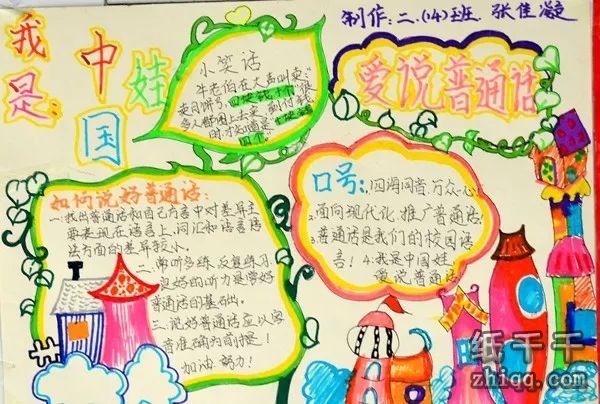 制作:二.(14)班. 张佳凝
我是:中国娃
爱说普通话
小笑话
牛老伯在大声叫卖:“
卖月饼号,四块钱,十个”很
多人都围上去买,到付钱
时才知道是
四个”
如何说好普通话:
一.找出普通话和自己方言中对差异主
要表现在语音上,词汇和语言语
法方面的差异较小。
二.常听多练,反复练习,
良好的听力是学好
普通话的基础。
三.说好普通话应以字
音准确为前提!
加油努力!
口号:1.四海同音,万众一心
2.面向现代化,推广普通话!
3.普通话是我们的校园语
言!4:我是中国娃!
爱说普通话
纸千千
zhiqq.com